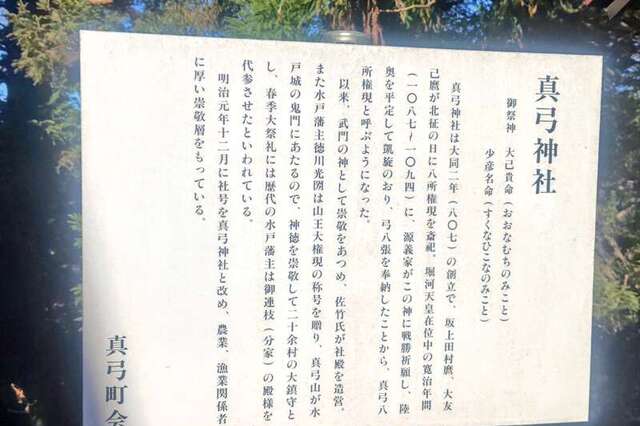 真弓神社
御祭神　大己貴命（おおなむちのみこと）
少彦名命（すくなひこなのみこと）
真弓神社は大同二年（八〇七）の創立で、坂上田村麿、大友
己麿が北征の日に八所権現を斎祀。堀河天皇在位中の寛治年間
（一〇八七〜一〇九四）に、源義家がこの神に戦勝祈願し、陸
奥を平定して凱旋のおり、弓八張を奉納したことから、真弓八
所権現と呼ぶようになった。
以来、武門の神として崇敬をあつめ、佐竹氏が社殿を造営。
また水戸藩主徳川光圀は山王大権現の称号を贈り、真弓山が水
戸城の鬼門にあたるので、神徳を崇敬して二十余村の大鎮守と
し、春季大祭礼には歴代の水戸藩主は御連枝（分家）の殿様を
代参させたといわれている。
明治元年十二月に社号を真弓神社と改め、農業、漁業関係者
に厚い崇敬層をもっている。
真弓町会